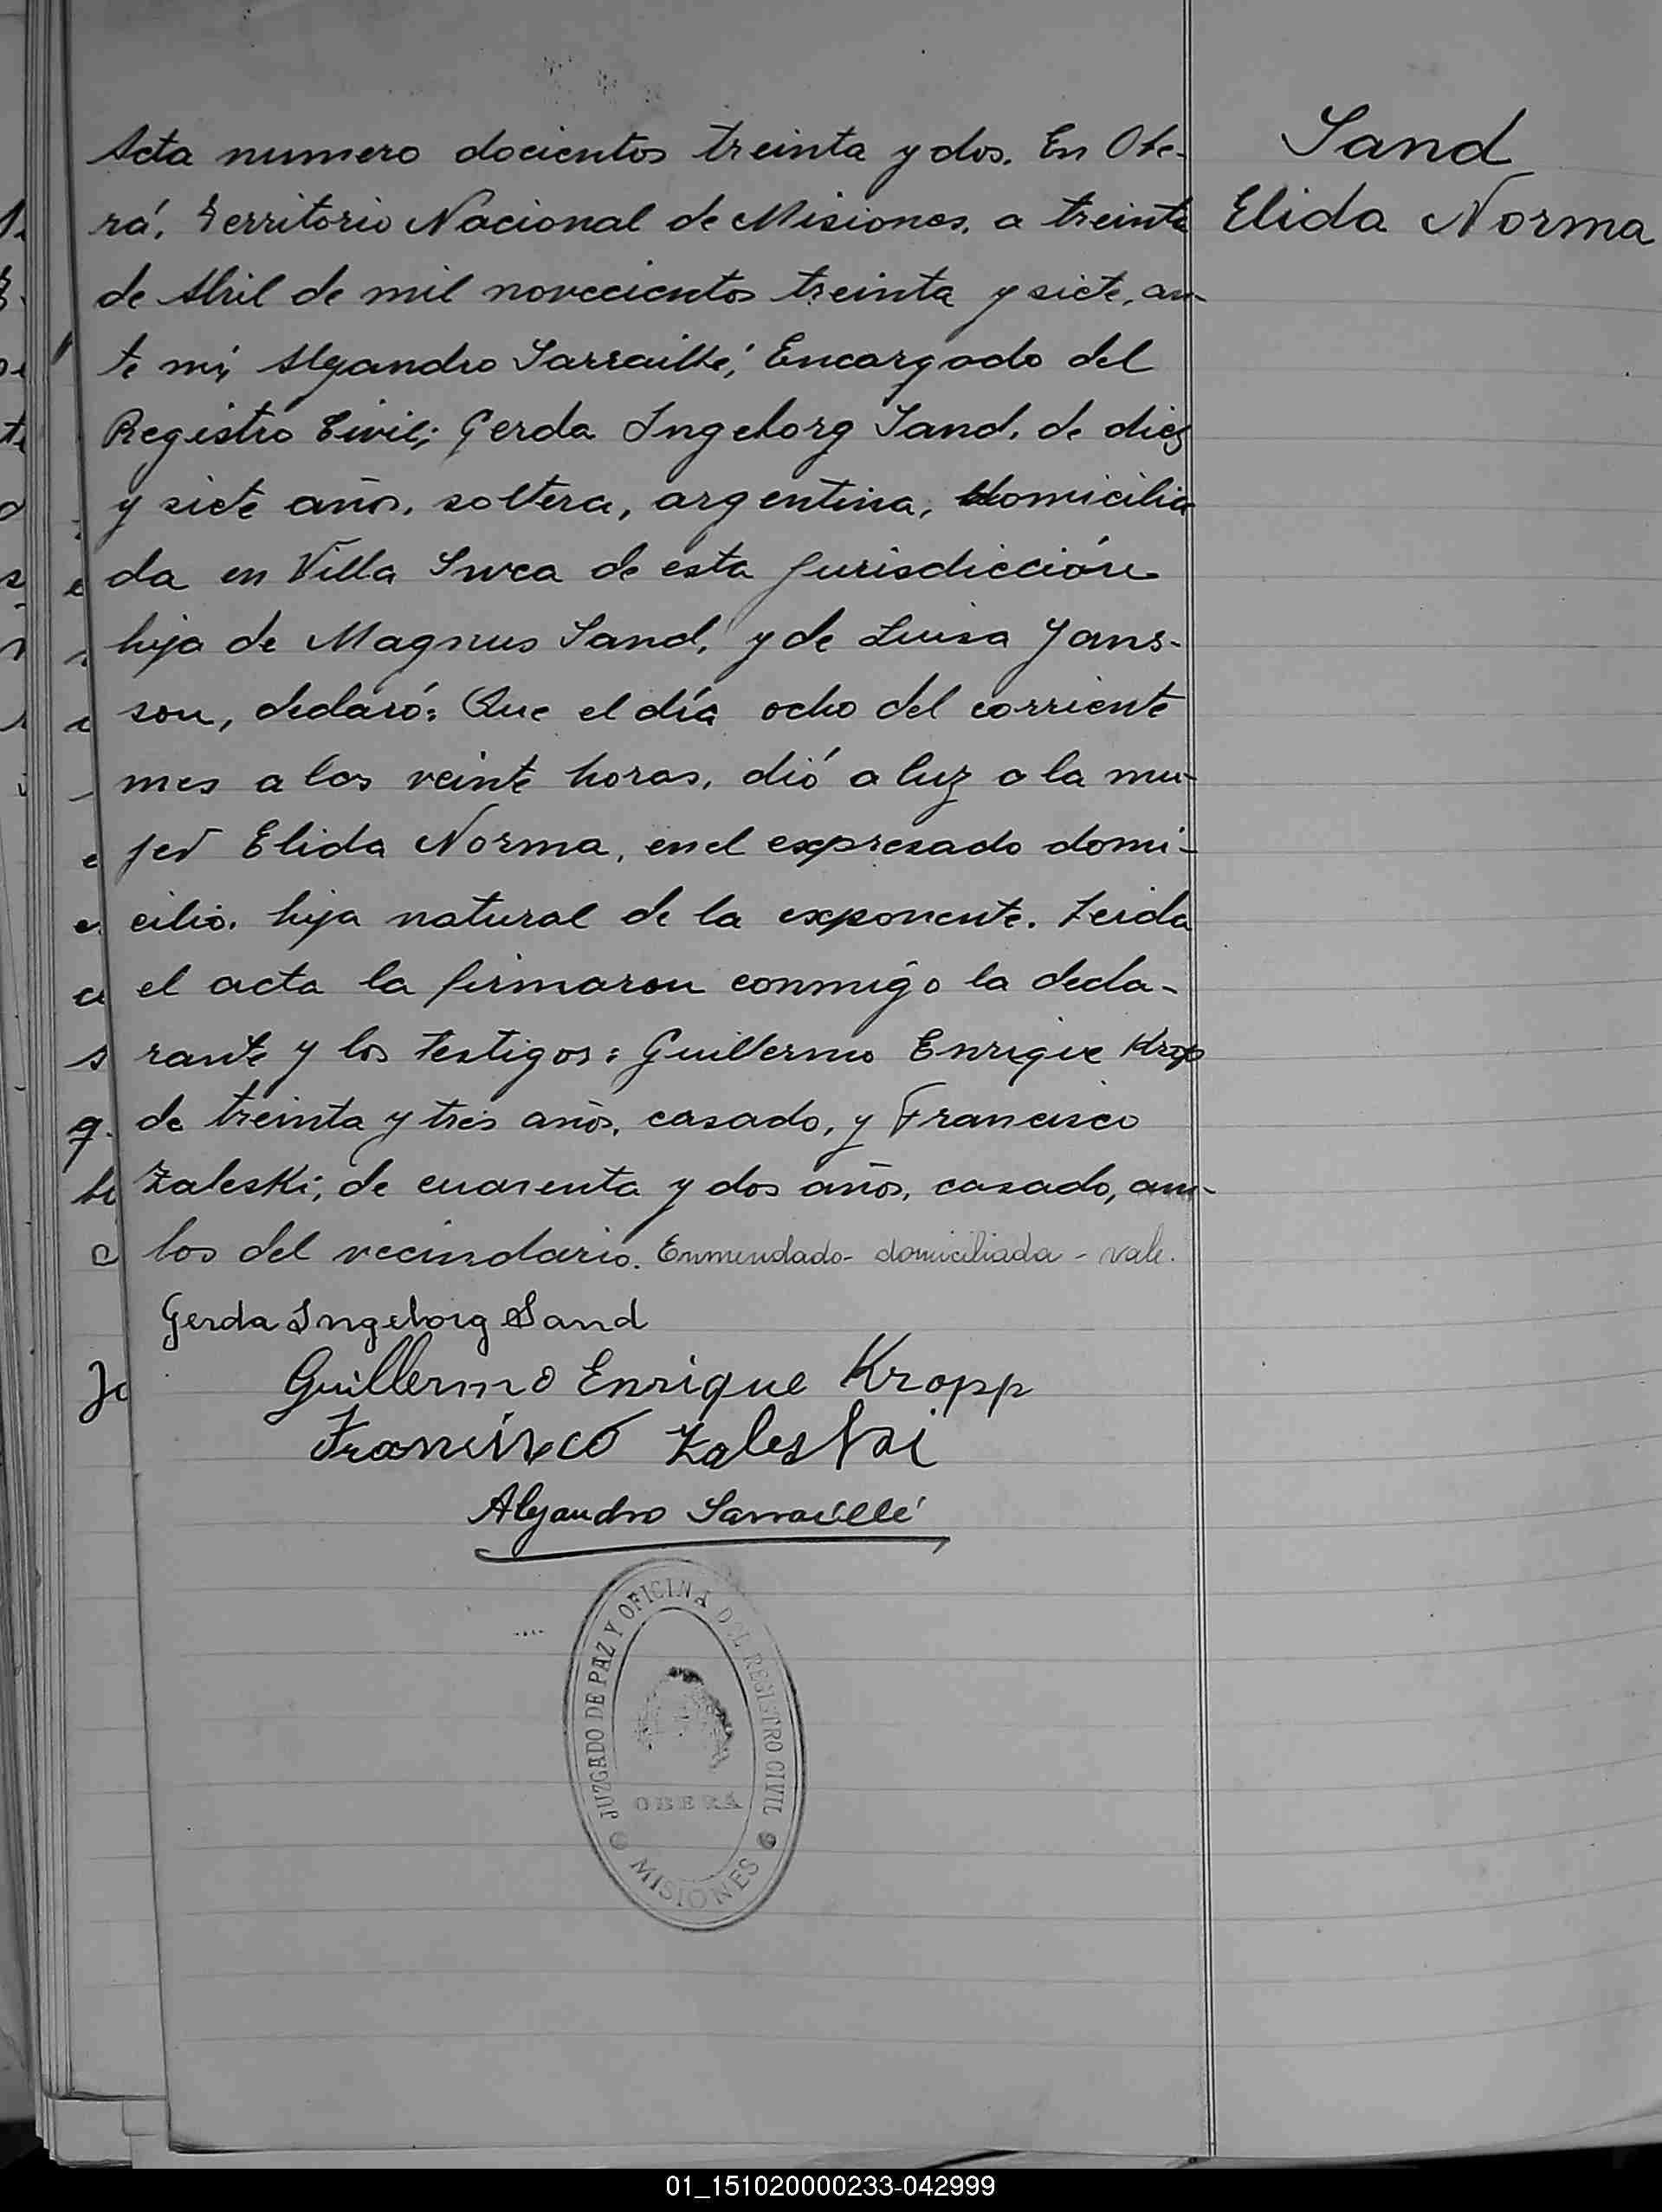 Acta numero docientos treinta y dos. En Obe-
rá, Territorio Nacional de Misiones, a treinta
de Abril de mil novecientos treinta y siete, an-
te mí, Alejandro Sarraillé, Encargado del
Registro Civil; Gerda Ingeborg Sand, de diez
y siete años, soltera, argentina, domicilia
da en Villa Svea de esta jurisdicción
hija de Magnus Sand, y de Luisa Jans-
son, declaró: Que el día ocho del corriente
mes a las veinte horas, dió a luz a la mu-
jer Elida Norma, en el expresado domi-
cilio, hija natural de la exponente. Leida
el acta la firmaron conmigo la decla-
rante y los testigos: Guillermo Enrique Krop
de treinta y tres años, casado, y Francisco
Zaleski, de cuarenta y dos años, casado, am-
bos del vecindario. Enmendado - domiciliada - vale.
Gerda Ingeborg Sand
Guillermo Enrique Kropp
Francisco Zaleski
Alejandro Sarraillé
Sand
Elida Norma
JUZGADO DE PAZ Y OFICINA DEL REGISTRO CIVIL
OBERÁ
MISIONES
01_151020000233-042999